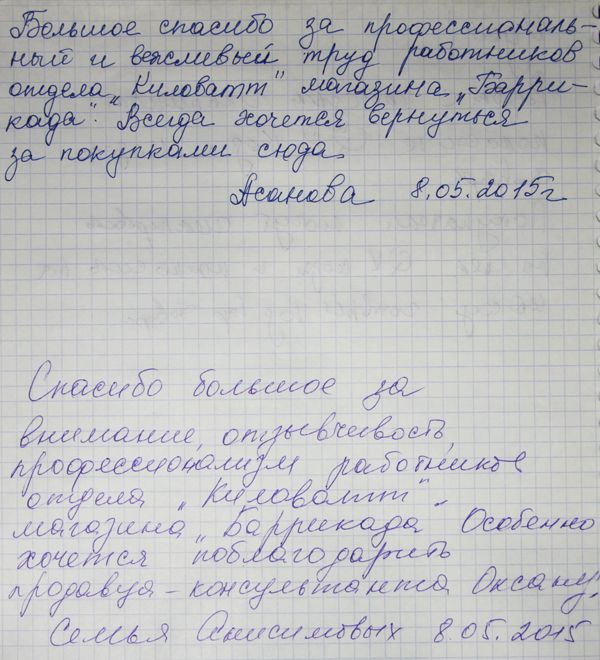 Большое спасибо за профессиональ-
ный и вежливый труд работников
отдела „Киловатт" магазина „Барри-
када". Всегда хочется вернуться
за покупками сюда.
Асанова 8.05.2015г
Спасибо большое за
внимание, отзывчивость,
профессионализм работников
отдела „Киловатт".
магазина „Баррикада Особенно
хочется поблагодарить
продавца-консультанта Оксану.
Семья Анисимовых 8.05.2015